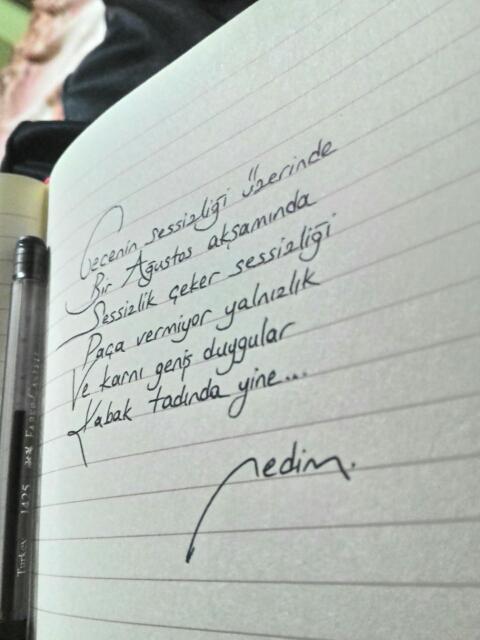 Gecenin sessizliği üzerinde
Bir Ağustos akşamında
Sessizlik çeker sessizliği
Paça vermiyor yalnızlık
Ve karnı geniş duygular
Kabak tadında yine...
Nedim.
Turkey 1425